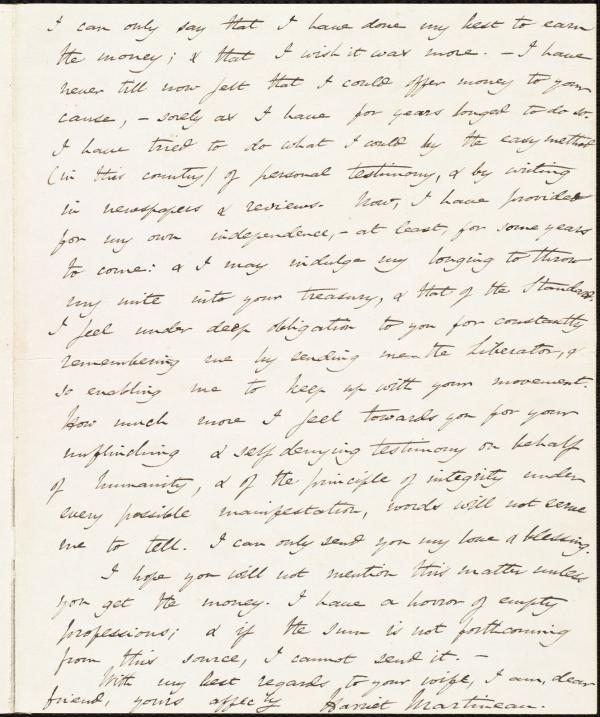 I can only say that I have done my best to earn
the money; & that I wish it was more. – I have
never till now felt that I could offer money to your
cause, – sorely as I have for years longed to do so.
I have tried to do what I could by the easy method
(in this country) of personal testimony, & by writing
in newspapers & reviews. Now, I have provided
for my own independence, – at least, for some years
to come: & I may indulge my longing to throw
my mite into your treasury, & that of the Standard.
I feel under deep obligation to you for constantly
remembering me by sending me the Liberator, &
so enabling me to keep up with your movement.
How much more I feel towards you for your
unflinching & self denying testimony on behalf
of humanity, & of the principle of integrity under
every possible manifestation, words will not serve
me to tell. I can only send you my love & blessing.
I hope you will not mention this matter unless
you get the money. I have a horror of empty
professions; & if the sum is not forthcoming
from this source, I cannot send it. –
With my best regards to your wife, I am, dear
friend, yours affecly Harriet Martineau.